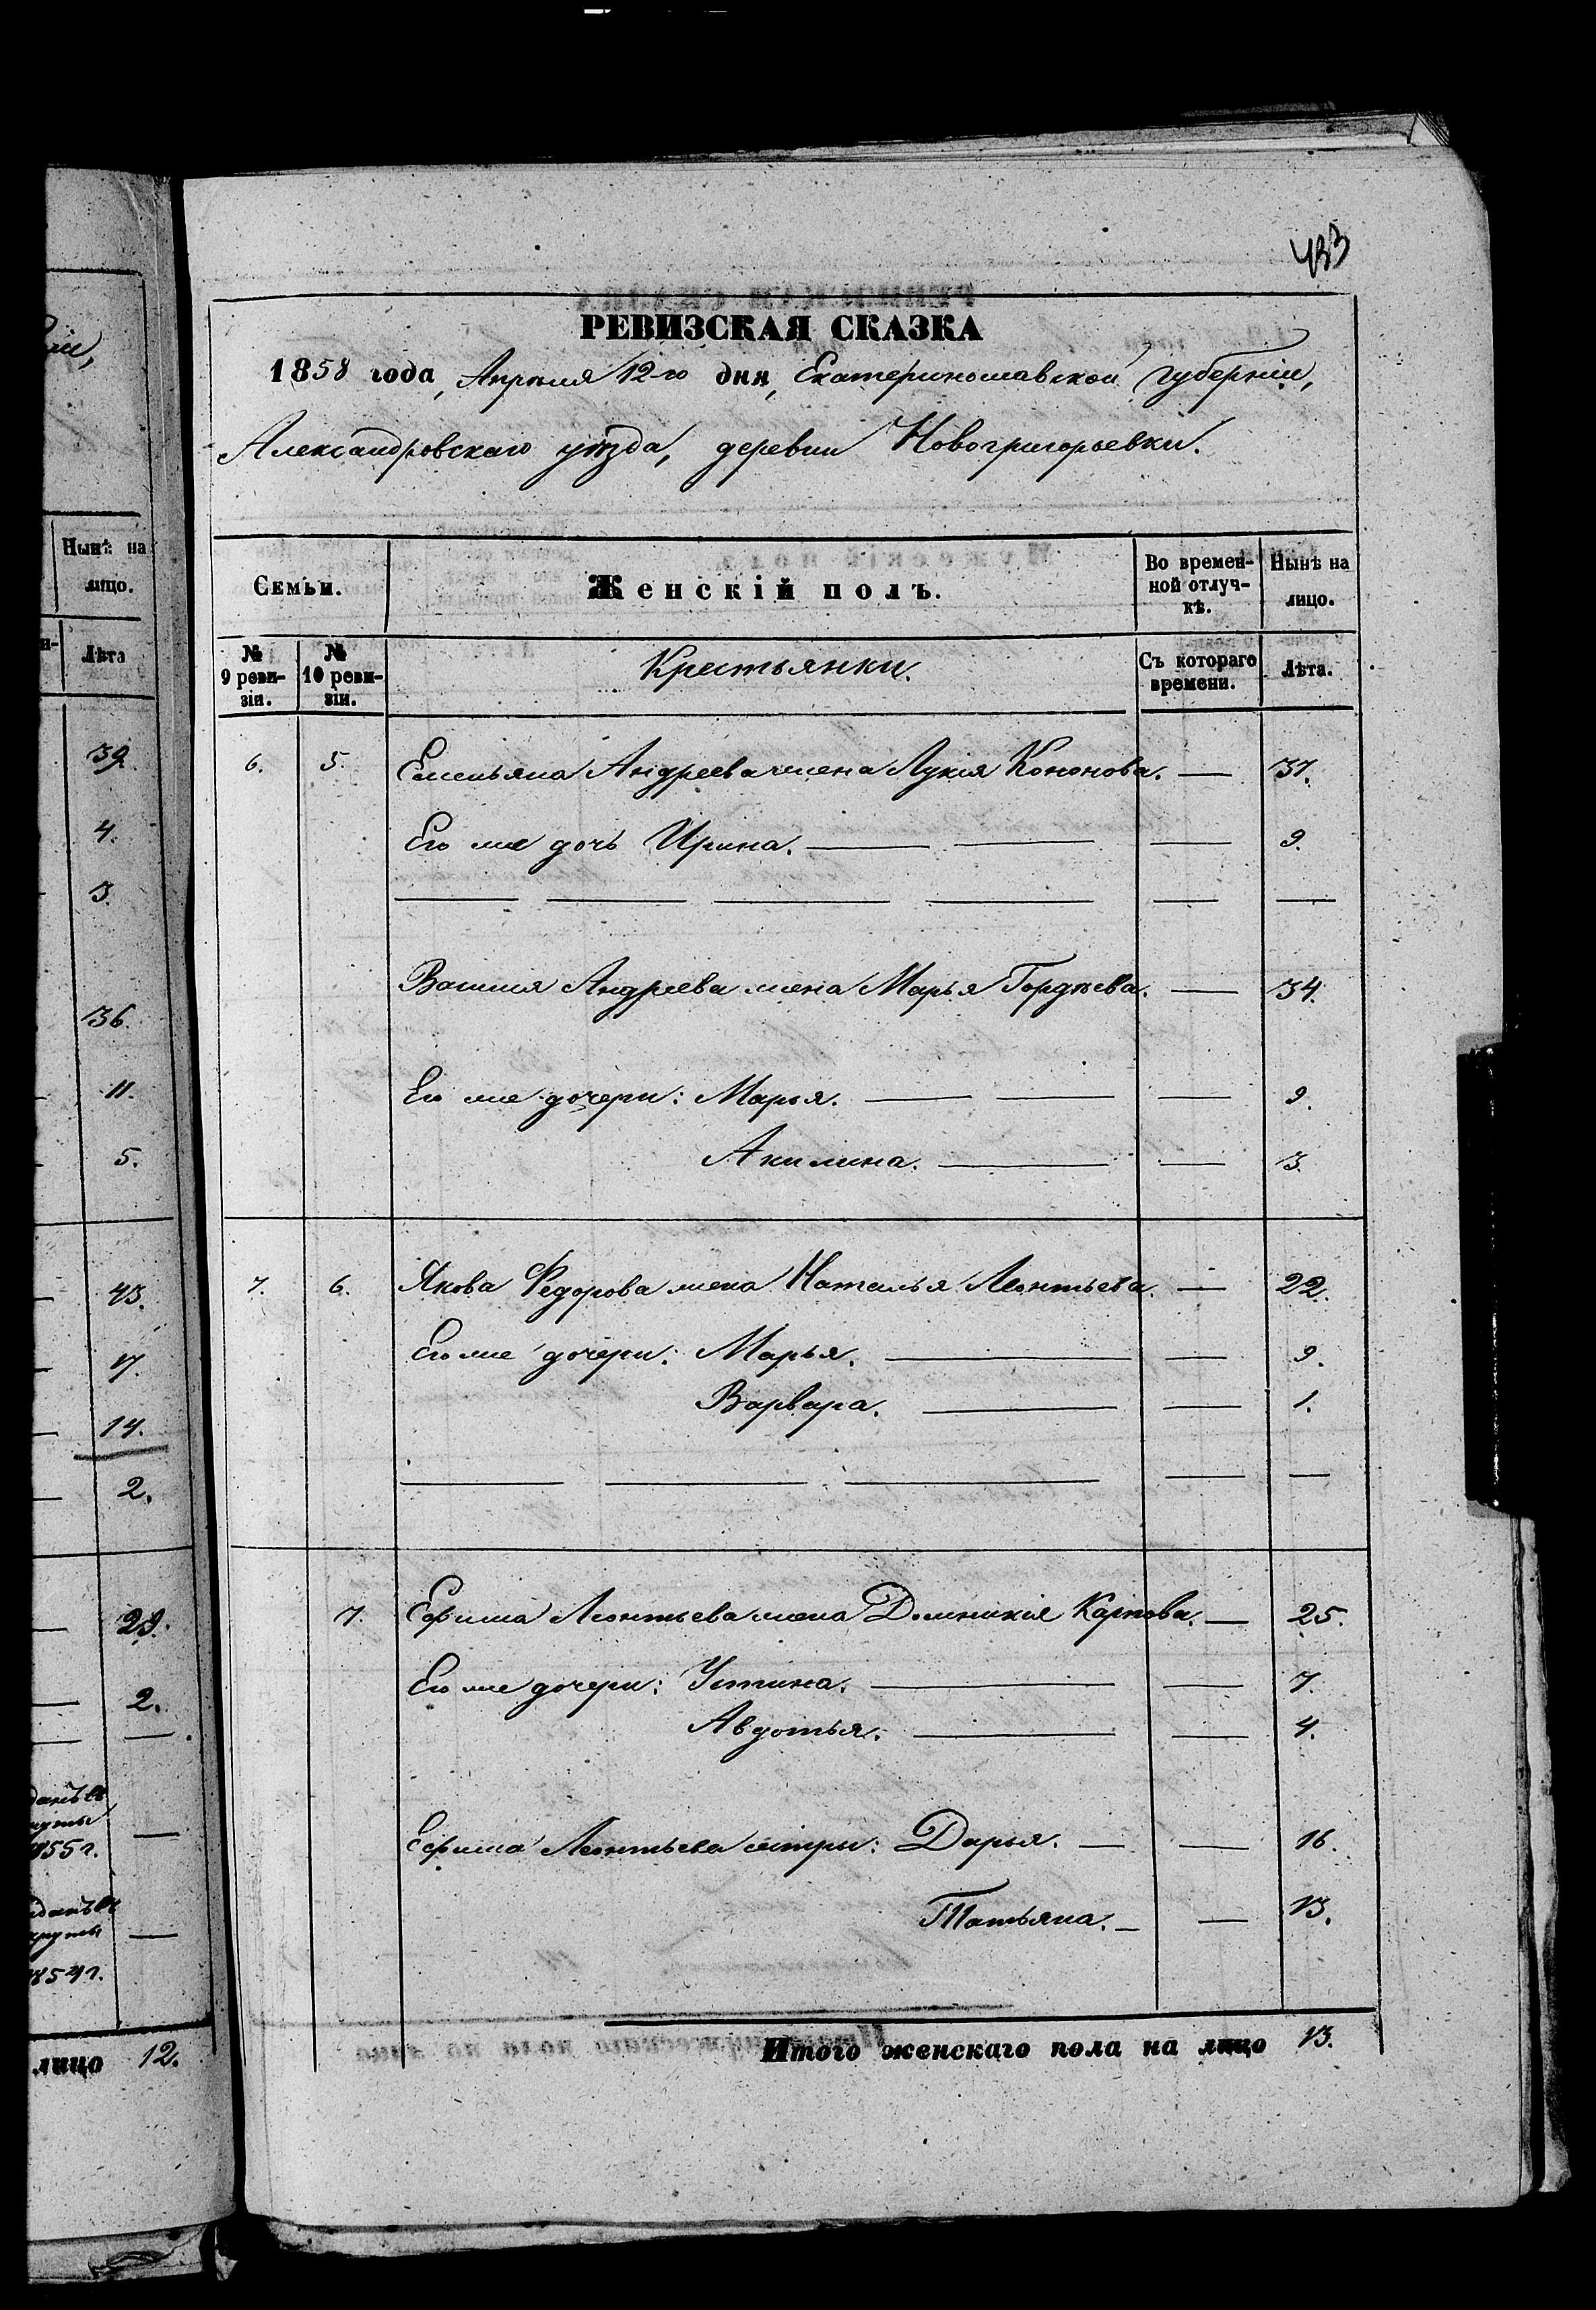 433
РЕВИЗСКАЯ СКАЗКА
1858 года, Апрѣля 12-го дня, Екатеринославской Губерніи,
Александровскаго уѣзда, деревни Новогригорьевки.
Семьи. Женскій полъ. Во времен- Нынѣ на
ной отлуч- лицо.
кѣ.
№ № Крестьянки. Съ котораго Лѣта.
9 реви- 10 реви- времени.
зіи. зіи.
6. 5. Емельяна Андреева жена Лукія Кононова. — 37.
Его же дочь Ирина. — 9.
Василія Андреева жена Марья Гордѣева. — 34.
Его же дочери: Марья. — 9.
Акилина. — 3.
7. 6. Якова Федорова жена Наталья Леонтьева. — 22.
Его же дочери: Марья. — 9.
Варвара. — 1.
7. Ефима Леонтьева жена Домникія Карпова. — 25.
Его же дочери: Устина. — 7.
Авдотья. — 4.
Ефима Леонтьева сестры: Дарья. — 16.
Татьяна. — 13.
Итого женскаго пола на лицо 13.
Нынѣ на
лицо.
Лѣта
39.
4.
3.
36.
11.
5.
43.
17.
14.
2.
29.
2.
1855 г.
1854 г.
лицо 12.